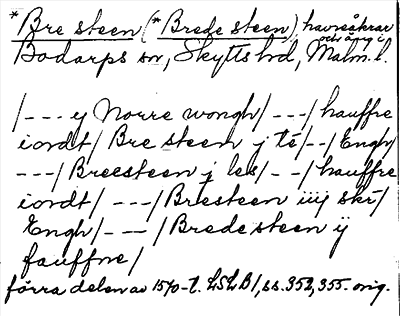 *Bre steen (*Brede steen), havreåkrar
och äng i,
Bodarps sn, Skytts hd, Malm. l.
/--- y Norre wongh/ ---/ hauffre
iordt/ Bre steen y té/--/ Engh/
---/ Breesteen j les/ - -/ hauffre
iordt/ ---/ Bresteen iiij skí/
Engh/- — -/ Brede steen ij
fauffne/
förra delen av 1570-t. LSLB 1, ss. 352, 355. orig.